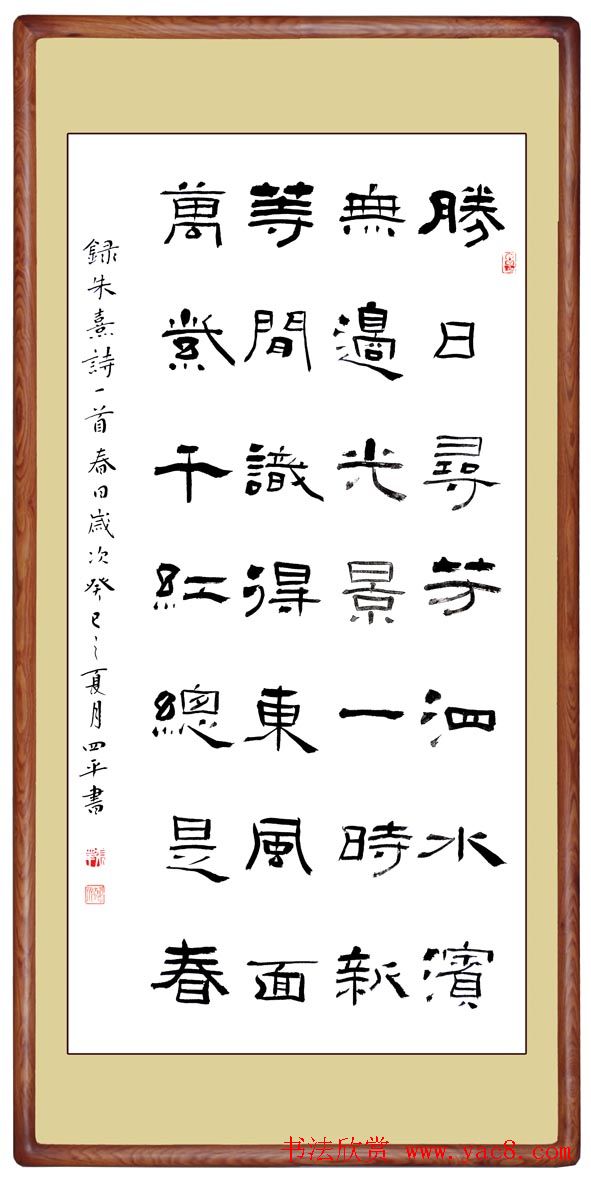 勝日尋芳泗水濱
無邊光景一時新
等閒識得東風面
萬紫千紅總是春
録朱熹詩一首春日歲次癸巳之夏月四平書
书法欣赏 www.yac8.com